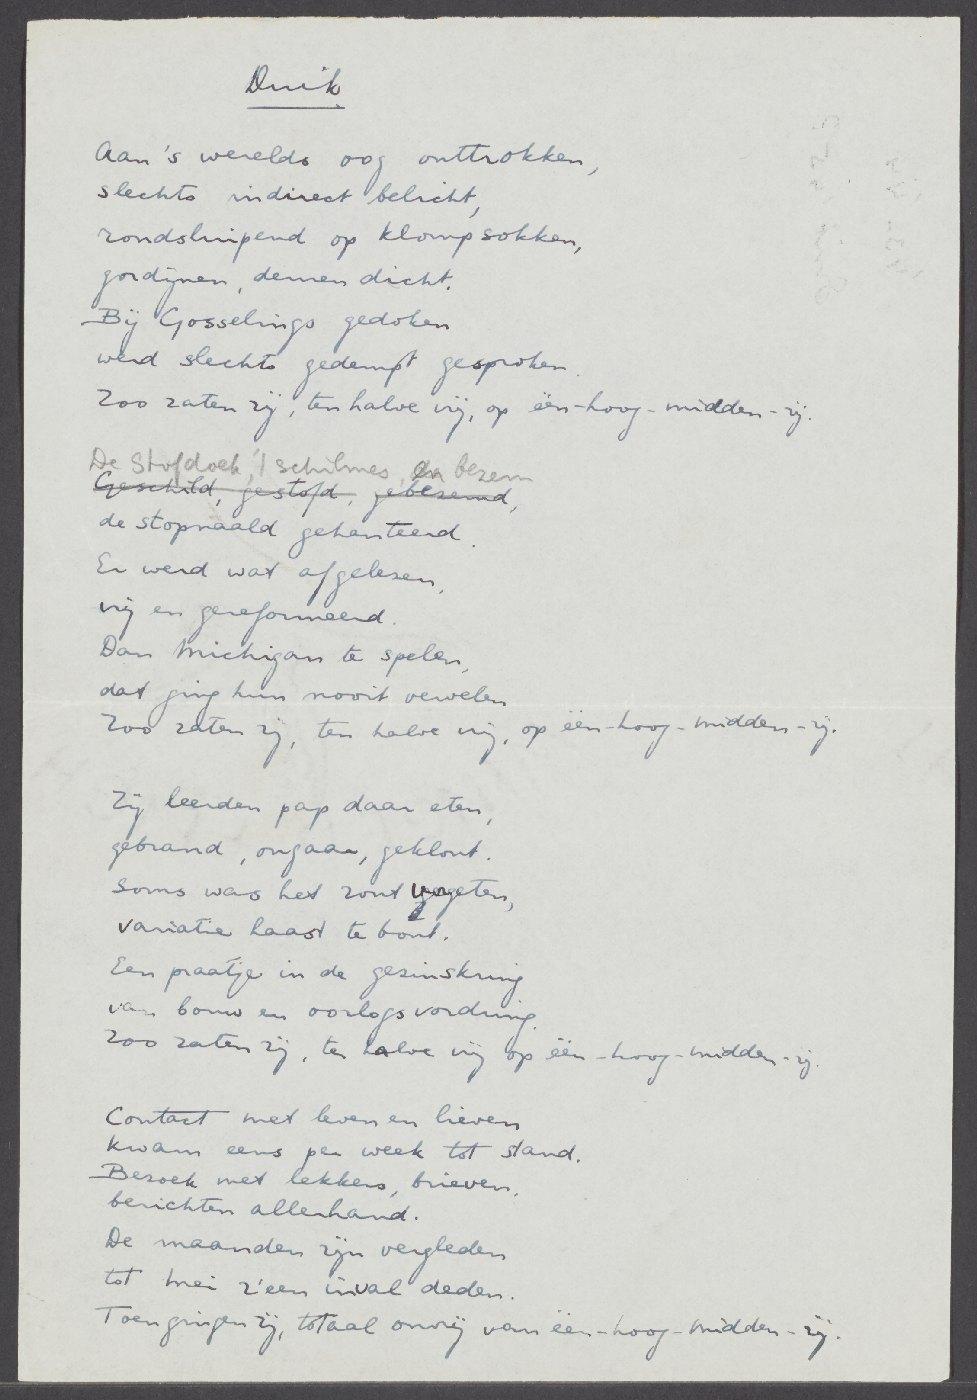 Duik
Aan 's werelds oog onttrokken,
slechts indirect belicht,
rondsluipend op klompsokken,
gordijnen, deuren dicht.
Bij Gosselings gedoken
werd slechts gedempt gesproken.
Zoo zaten zij, ten halve vrij, op één-hoog-midden-zij.
De Stofdoek, 't schilmes, en bezem
Geschild, gestofd, gebezemd,
de stopnaald gehanteerd.
Er werd wat afgelezen,
vrij en gereformeerd.
Dan Michigan te spelen,
dat ging hun nooit vervelen
Zoo zaten zij, ten halve vrij, op één-hoog-midden-zij.
Zij leerden pap daar eten,
gebrand, ongaar, geklont.
Soms was het zout vergeten,
variatie haast te bont.
Een praatje in de gezinskring
van bouw en oorlogsvordring.
Zoo zaten zij, ten halve vrij op één-hoog-midden-zij.
Contact met leven en lieven
kwam eens per week tot stand.
Bezoek met lekkers, brieven,
berichten allerhand.
De maanden zijn vergleden
tot Mei z'een inval deden.
Toen gingen zij, totaal onvrij van één-hoog-midden-zij.